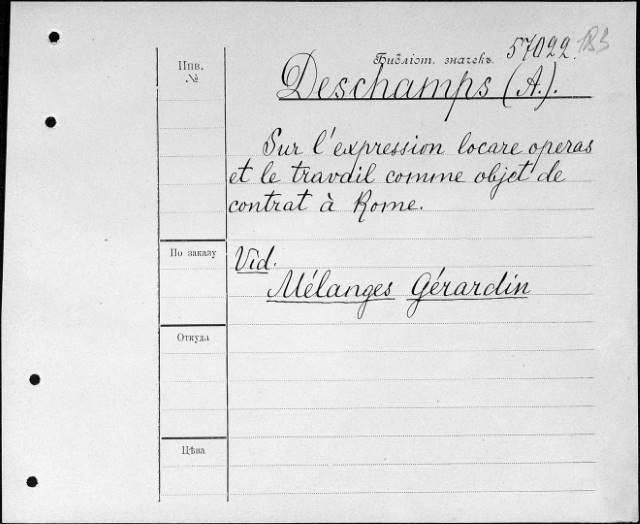 57022. 183
Инв. №
Библіот. значекъ
Deschamps (A.).
Sur l'expression locare operas
et le travail comme objet de
contrat à Rome.
По заказу
Vid.
Mélanges Gérardin
Откуда
Цѣна